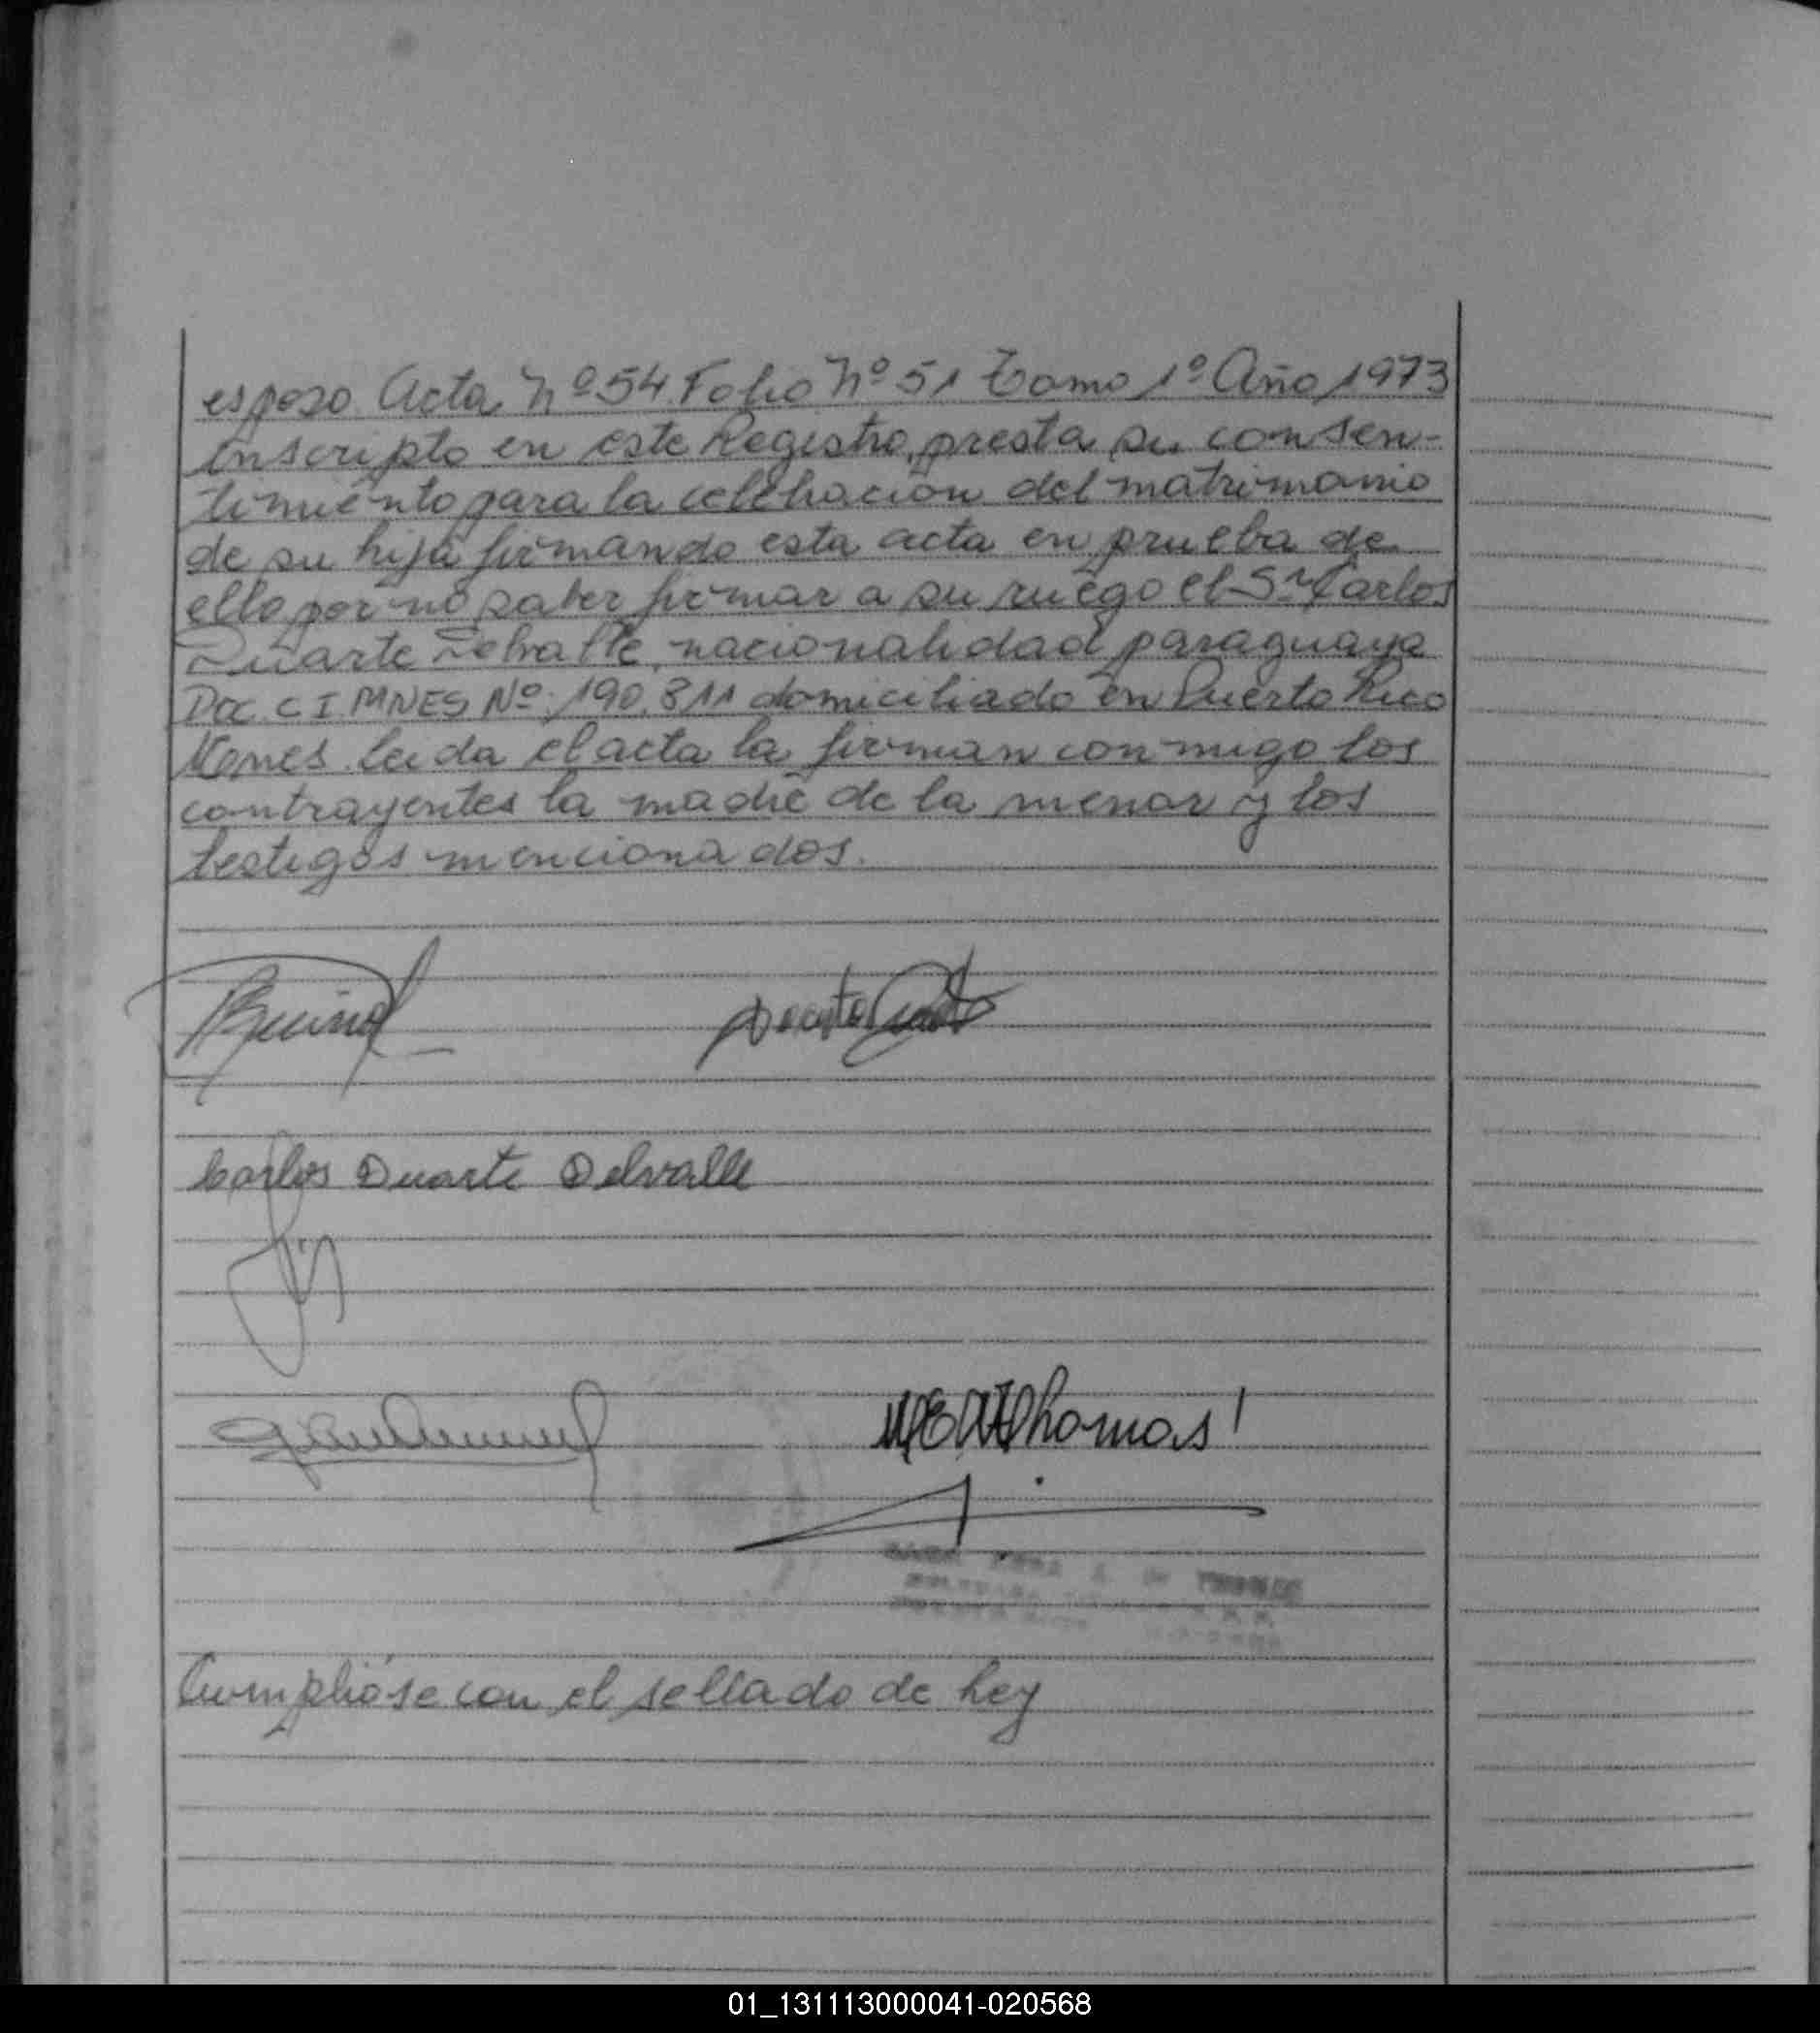 esposo Acta Nº 54 Folio Nº 51 Tomo 1º Año 1973
inscripto en este Registro, presta su consen-
timiento para la celebracion del matrimonio
de su hija firmando esta acta en prueba de
ello por no saber firmar a su ruego el Sr Carlos
Duarte Delvalle, nacionalidad paraguaya
Doc. C I. MNES Nº 190.811 domiciliado en Puerto Rico
Mnes. leida el acta la firman conmigo los
contrayentes la madre de la menor y los
testigos mencionados.
Carlos Duarte Delvalle
Thomas
Cumplióse con el sellado de Ley
01_131113000041-020568